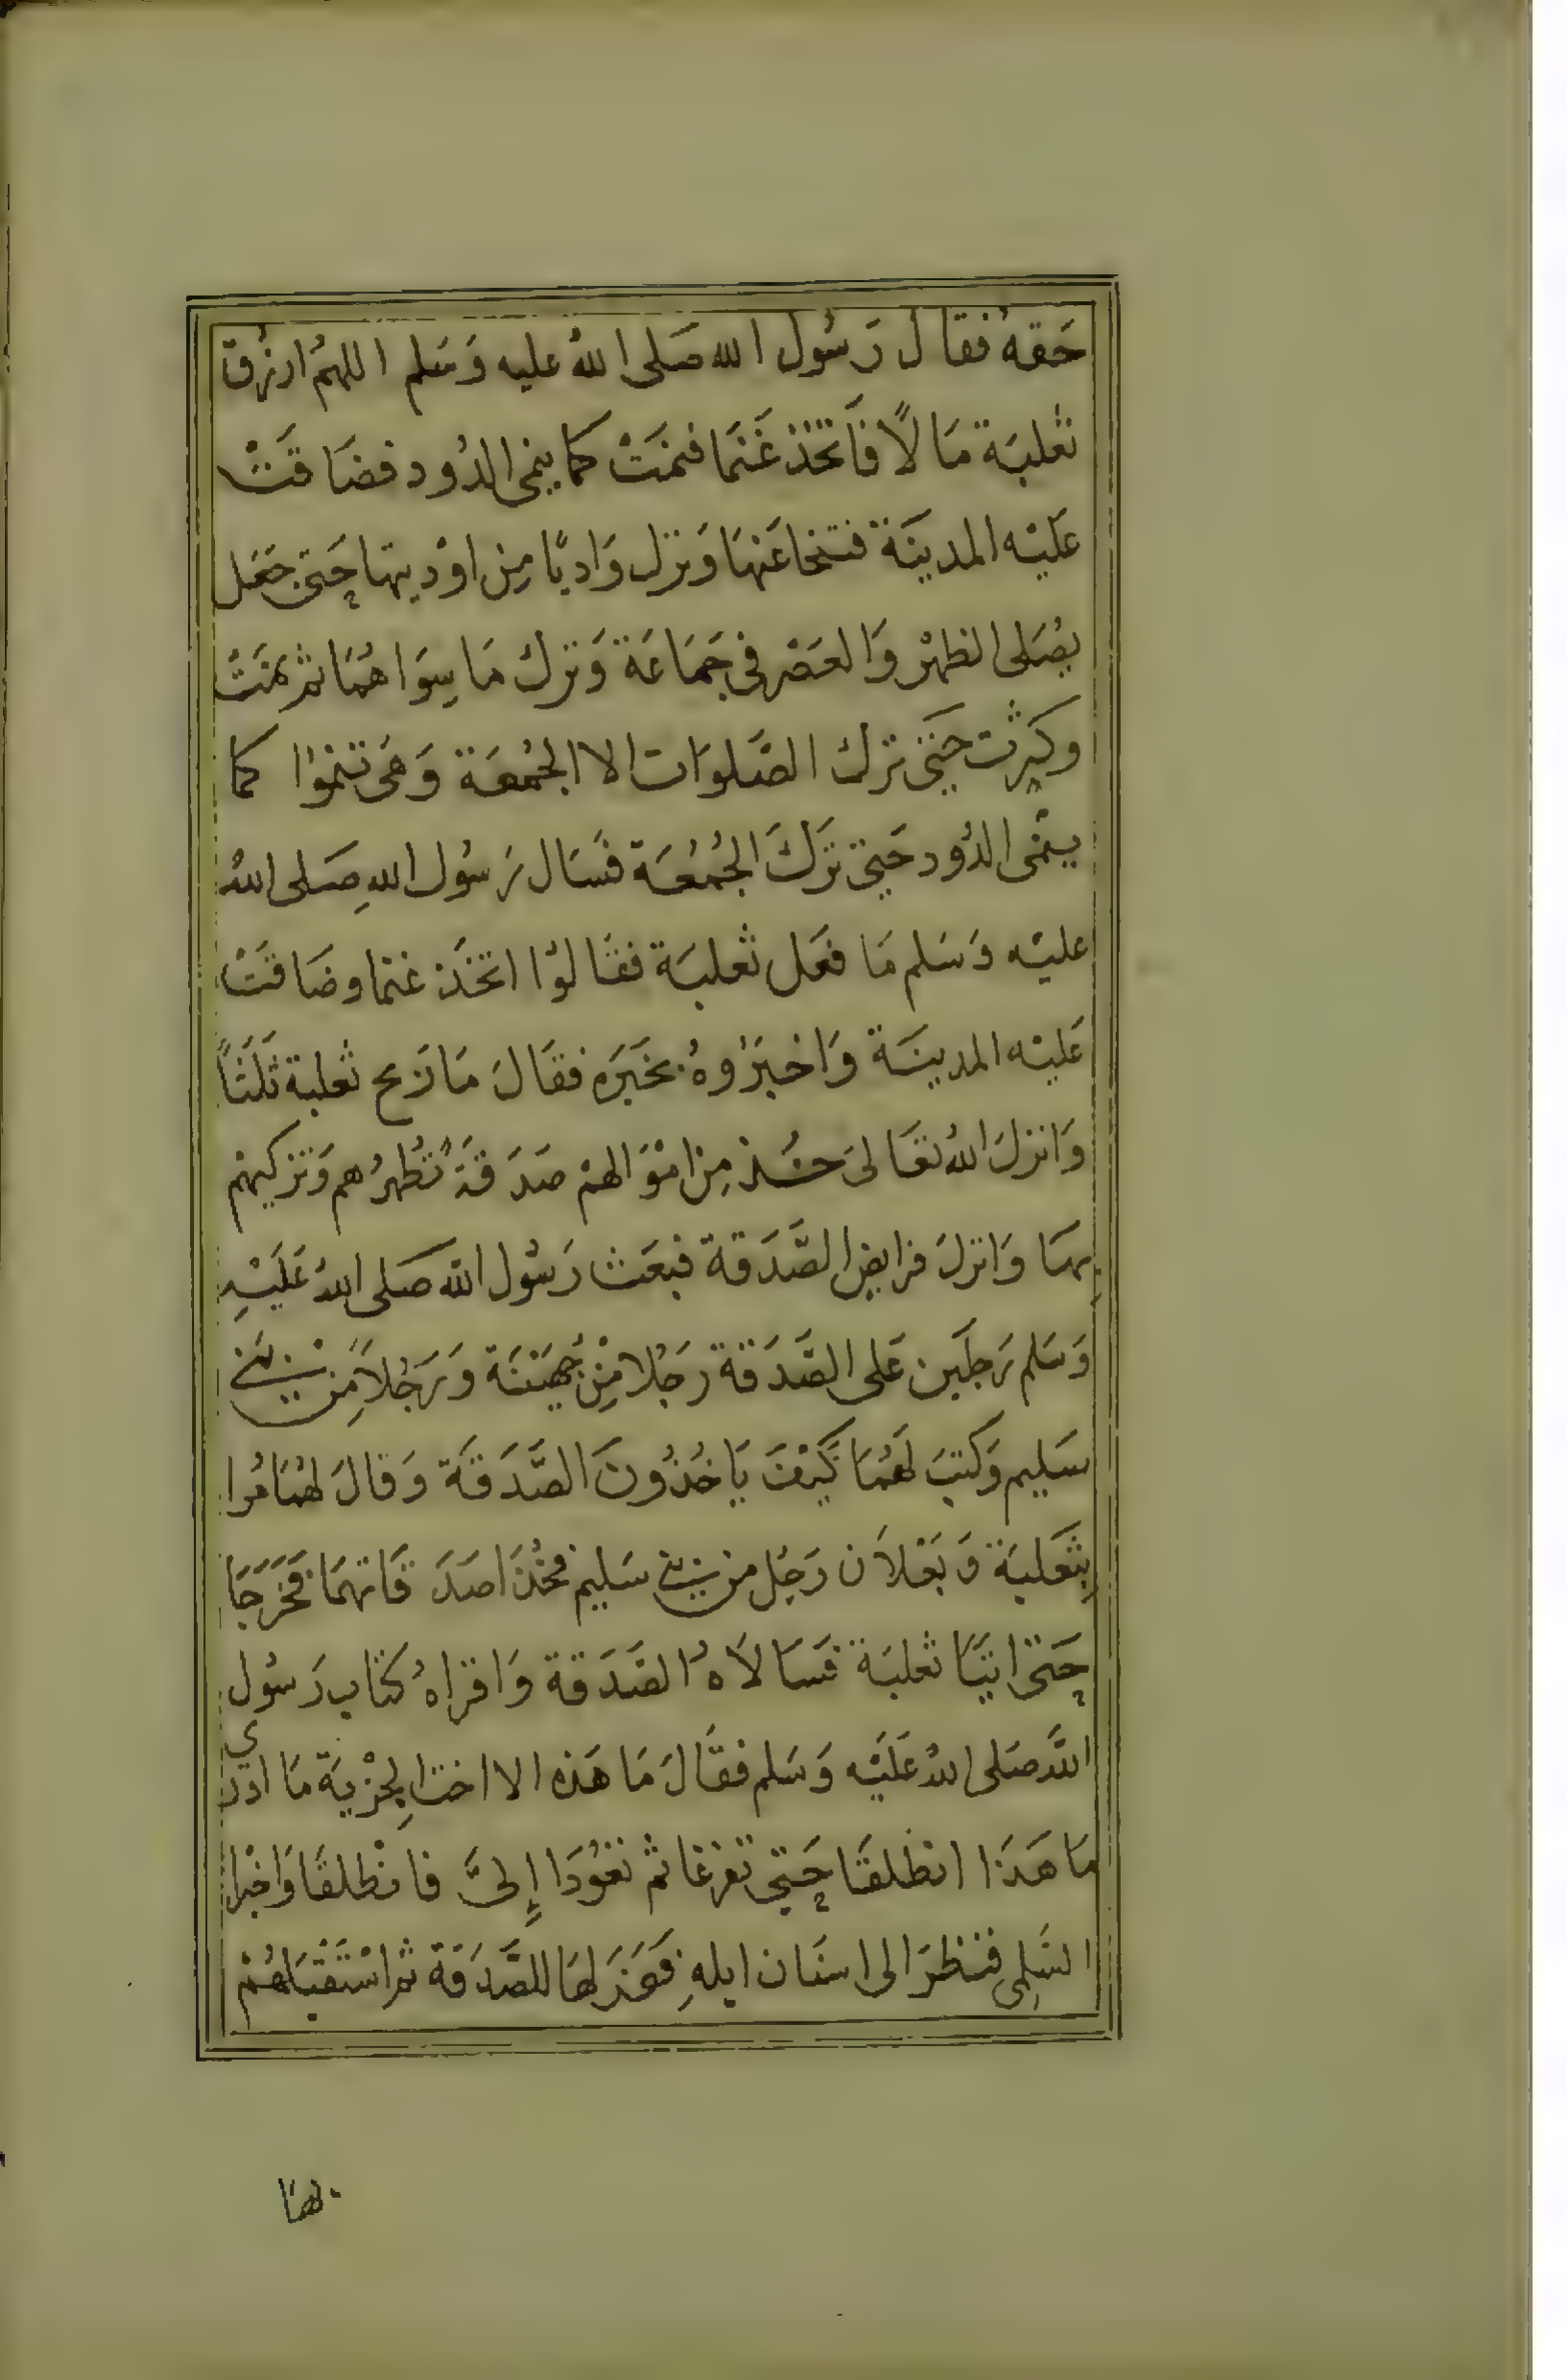 حَقهُ فقال رَسُول الله صَلى اللهُ عليه وَسَلم اللهمُ ارزُق
ثعلبَة مَالًا فَاتخذ غَنَمَا فنمَتْ كما ينمى الدُود فضَاقَتْ
عَليْه المدينَة فتنحا عَنهَا وَنزل وَاديًا مِن اوْديتها حَتى جَعَل
يُصَلى الظهْر وَالعَصْر فى جَمَاعَة وَترك مَا سِوَاهُمَا ثم نمَتْ
وكَثرت حَتى ترك الصَّلوَات الا الجُمعَة وَهى تنموُا كما
ينْمى الدُود حَتى تَركَ الجُمُعَة فسَال رَسُول اللهِ صَلى اللهُ
عليْه وَسَلم مَا فعَل ثعلبَة فقَالوْا اتخَذ غنما وضَاقتْ
عَليْه المدينَة وَاخبَرُوهُ بخَبَرَه فقَالَ مَا رَيح ثعلبة ثَلَثَاً
وَانزلَ اللهُ تعَالىَ خُذ مِن امْوَالهمْ صَدَقةً تُطَهرُهم وَتزكيهمْ
بهَا وَانزلَ فرايض الصَّدَقة فبعَث رَسُول الله صَلى اللهُ عَلَيْهِ
وَسَلم رَجلَين عَلى الصَّدَقة رَجُلا مِنْ جُهَيْنَة وَرَجُلاً مِن بنى
سَليم وَكتبَ لَهُمَا كَيْفَ يَاخُذُونَ الصَّدَقَة وَقالَ لهُمَا مُرا
بثعَلبَة وَبفلاَن رَجُل من بنى سَليم فخُذَا صَدَقَاتهمَا فخَرَجَا
حَتى اتيَا ثعلبَة فسَالاَهُ الصَّدَقة وَاقراهُ كتَاب رَسُول
اللَّه صَلى اللهُ عَلَيْه وَسَلم فقَالَ مَا هَذه الا اختا لِجزْيَة مَا ادرى
مَا هَذَا انطلقَا حَتى تفرغا ثم تعُودَا إِلىَّ فانْطلقَا وَاخْبرا
السَلِمى فنظرَ الى اسنَان ابلهِ فعَزَلهَا للصَّدَقة ثم اسْتَقبَلهُمْ
لهمَا